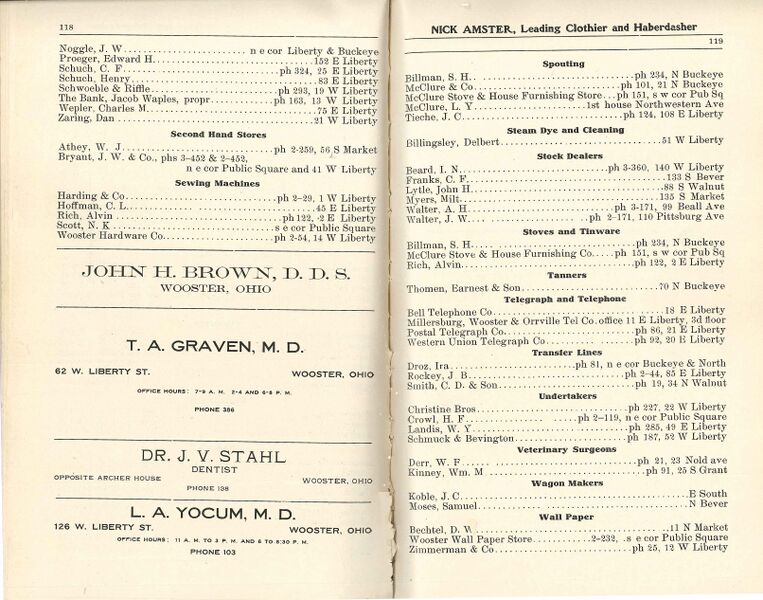 118
Noggle, J. W. n e cor Liberty & Buckeye
Proeger, Edward H. 152 E Liberty
Schuch, C. F. ph 324, 25 E Liberty
Schuch, Henry 83 E Liberty
Schwoeble & Riffle ph 293, 19 W Liberty
The Bank, Jacob Waples, propr. ph 163, 13 W Liberty
Wepler, Charles M. 75 E Liberty
Zaring, Dan 21 W Liberty
Second Hand Stores
Athey, W. J. ph 2-259, 56 S Market
Bryant, J. W. & Co., phs 3-452 & 2-452,
n e cor Public Square and 41 W Liberty
Sewing Machines
Harding & Co. ph 2-29, 1 W Liberty
Hoffman, C. L. 45 E Liberty
Rich, Alvin ph 122, 2 E Liberty
Scott, N. K. s e cor Public Square
Wooster Hardware Co. ph 2-54, 14 W Liberty
JOHN H. BROWN, D. D. S.
WOOSTER, OHIO
T. A. GRAVEN, M. D.
62 W. LIBERTY ST. WOOSTER, OHIO
OFFICE HOURS: 7-9 A. M. 2-4 AND 6-8 P. M.
PHONE 386
DR. J. V. STAHL
DENTIST
OPPOSITE ARCHER HOUSE WOOSTER, OHIO
PHONE 138
L. A. YOCUM, M. D.
126 W. LIBERTY ST. WOOSTER, OHIO
OFFICE HOURS: 11 A. M. TO 3 P. M. AND 6 TO 8:30 P. M.
PHONE 103
NICK AMSTER, Leading Clothier and Haberdasher
119
Spouting
Billman, S. H. ph 234, N Buckeye
McClure & Co. ph 101, 21 N Buckeye
McClure Stove & House Furnishing Store ph 151, s w cor Pub Sq
McClure, L. Y. 1st house Northwestern Ave
Tieche, J. C. ph 124, 108 E Liberty
Steam Dye and Cleaning
Billingsley, Delbert 51 W Liberty
Stock Dealers
Beard, I. N. ph 3-360, 140 W Liberty
Franks, C. F. 133 S Bever
Lytle, John H. 88 S Walnut
Myers, Milt. 135 S Market
Walter, A. H. ph 3-171, 99 Beall Ave
Walter, J. W. ph 2-171, 110 Pittsburg Ave
Stoves and Tinware
Billman, S. H. ph 234, N Buckeye
McClure Stove & House Furnishing Co. ph 151, s w cor Pub Sq
Rich, Alvin ph 122, 2 E Liberty
Tanners
Thomen, Earnest & Son 70 N Buckeye
Telegraph and Telephone
Bell Telephone Co. 18 E Liberty
Millersburg, Wooster & Orrville Tel Co. office 11 E Liberty, 3d floor
Postal Telegraph Co. ph 86, 21 E Liberty
Western Union Telegraph Co ph 92, 20 E Liberty
Transfer Lines
Droz, Ira ph 81, n e cor Buckeye & North
Rockey, J. B. ph 2-44, 85 E Liberty
Smith, C. D. & Son ph 19, 34 N Walnut
Undertakers
Christine Bros. ph 227, 22 W Liberty
Crowl, H. F. ph 2-119, n e cor Public Square
Landis, W. Y. ph 285, 49 E Liberty
Schmuck & Bevington ph 187, 52 W Liberty
Veterinary Surgeons
Derr, W. F. ph 21, 23 Nold ave
Kinney, Wm. M. ph 91, 25 S Grant
Wagon Makers
Koble, J. C. E South
Moses, Samuel N Bever
Wall Paper
Bechtel, D. W. 11 N Market
Wooster Wall Paper Store 2-232, s e cor Public Square
Zimmerman & Co. ph 25, 12 W Liberty